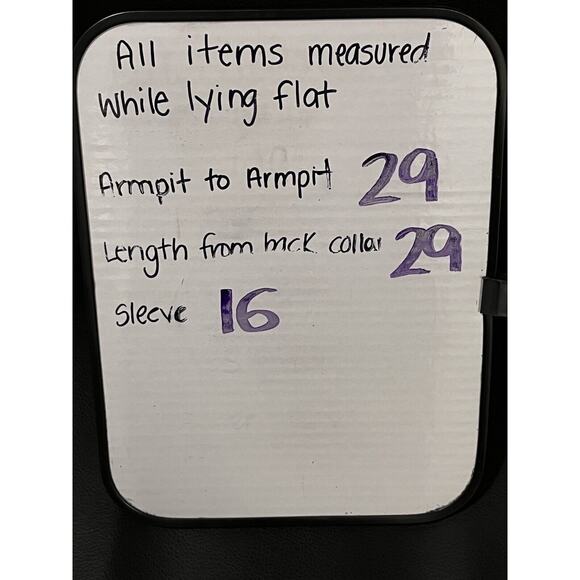 All items measured
while lying flat
Armpit to Armpit 29
Length from back collar 29
Sleeve 16